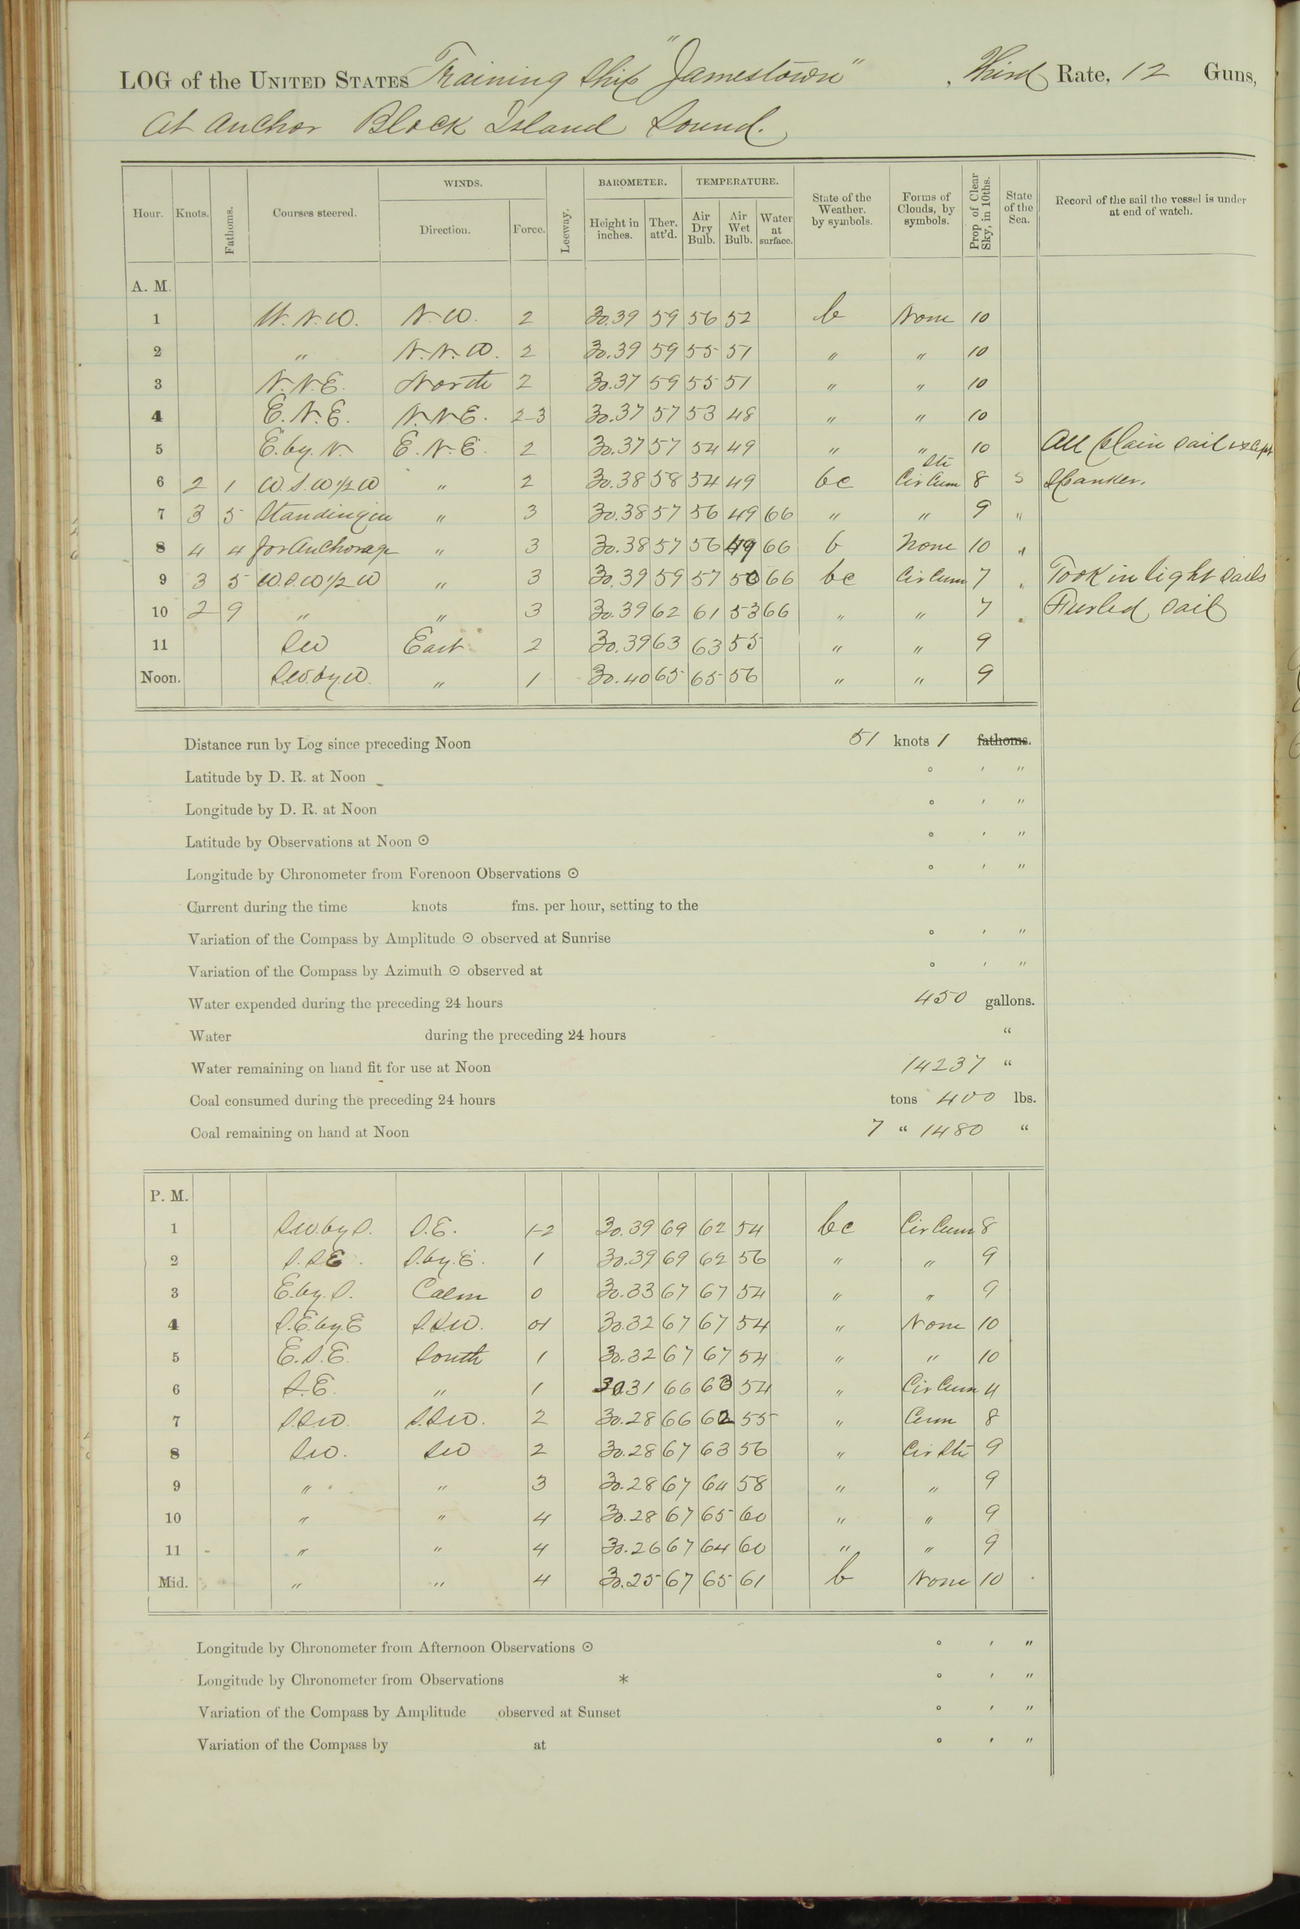 LOG of the UNITED STATES Training Ship "Jamestown", Third Rate, 12 Guns,
At anchor Block Island Sound.
Hour. Knots. Fathoms. Courses steered. WINDS. Direction. Force. Leeway. BAROMETER. Height in inches. Ther. att'd. TEMPERATURE. Air Dry Bulb. Air Wet Bulb. Water at surface. State of the Weather. by symbols. Forms of Clouds, by symbols. Prop. of Clear Sky, in 10ths. State of the Sea. Record of the sail the vessel is under at end of watch.
A. M.
1 W.N.W. N.W. 2 30.39 59 56 52 b None 10
2 " N.N.W. 2 30.39 59 55 51 " " 10
3 N.N.E. North 2 30.37 59 55 51 " " 10
4 E.N.E. N.N.E. 2-3 30.37 57 53 48 " " 10
5 E. by N. E.N.E. 2 30.37 57 54 49 " " 10 All plain sail except
6 2 1 W.S.W 1/2 W " 2 30.38 58 54 49 bc Cir Cum Str 8 S Spanker.
7 3 5 Standing in " 3 30.38 57 56 49 66 " " 9 "
8 4 4 for Anchorage " 3 30.38 57 56 49 66 b None 10 "
9 3 5 W S W 1/2 W " 3 30.39 59 57 50 66 bc Cir Cum 7 " Took in light sails
10 2 9 " " 3 30.39 62 61 53 66 " " 7 " Furled sail
11 SW East 2 30.39 63 63 55 " " 9
Noon. SW. by W. " 1 30.40 65 65 56 " " 9
Distance run by Log since preceding Noon 51 knots 1 fathoms.
Latitude by D. R. at Noon ° ' "
Longitude by D. R. at Noon ° ' "
Latitude by Observations at Noon ☉ ° ' "
Longitude by Chronometer from Forenoon Observations ☉ ° ' "
Current during the time knots fms. per hour, setting to the
Variation of the Compass by Amplitude ☉ observed at Sunrise ° ' "
Variation of the Compass by Azimuth ☉ observed at ° ' "
Water expended during the preceding 24 hours 450 gallons.
Water during the preceding 24 hours "
Water remaining on hand fit for use at Noon 14237 "
Coal consumed during the preceding 24 hours tons 400 lbs.
Coal remaining on hand at Noon 7 " 1480 "
P. M.
1 SW. by S. S.E. 1-2 30.39 69 62 54 bc Cir Cum 8
2 S.S.E. S. by E. 1 30.39 69 62 56 " " 9
3 E. by S. Calm 0 30.33 67 67 54 " " 9
4 S.E. by E S.S.W. 01 30.32 67 67 54 " None 10
5 E.S.E. South 1 30.32 67 67 54 " " 10
6 S.E. " 1 30.31 66 63 54 " Cir Cum 4
7 S.SW. S.SW. 2 30.28 66 62 55 " Cum 8
8 SW. SW 2 30.28 67 63 56 " Cir Str 9
9 " " 3 30.28 67 64 58 " " 9
10 " " 4 30.28 67 65 60 " " 9
11 " " 4 30.26 67 64 60 " " 9
Mid. " " 4 30.25 67 65 61 b None 10
Longitude by Chronometer from Afternoon Observations ☉ ° ' "
Longitude by Chronometer from Observations * ° ' "
Variation of the Compass by Amplitude observed at Sunset ° ' "
Variation of the Compass by at ° ' "